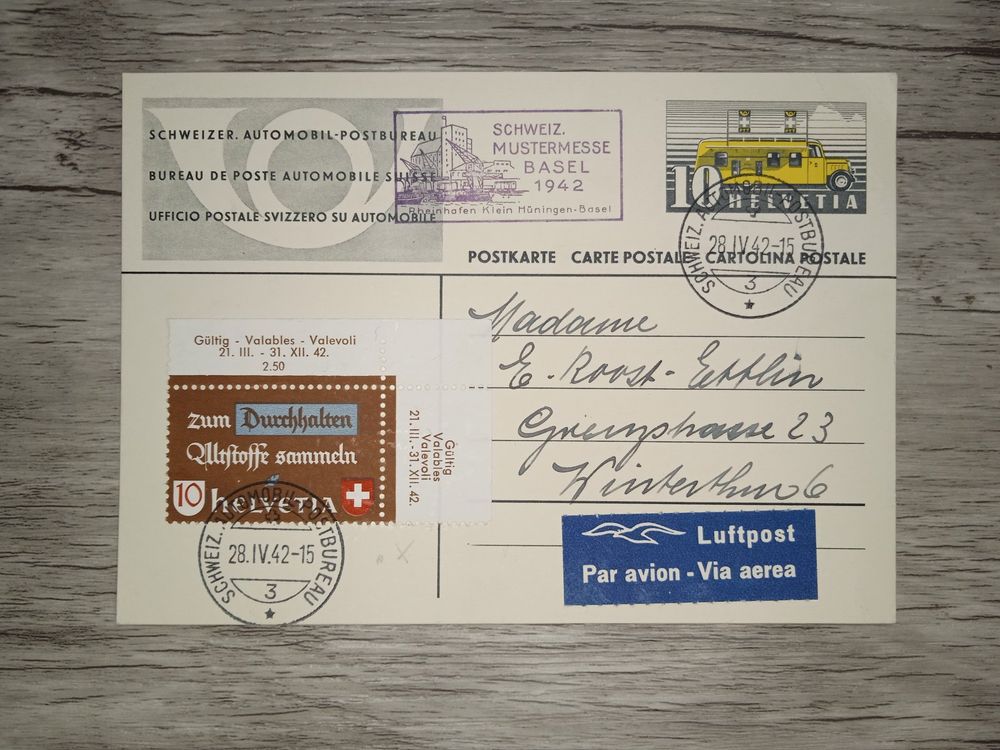 SCHWEIZER. AUTOMOBIL-POSTBUREAU
BUREAU DE POSTE AUTOMOBILE SUISSE
UFFICIO POSTALE SVIZZERO SU AUTOMOBILE
SCHWEIZ.
MUSTERMESSE
BASEL
1942
Rheinhafen Klein Hüningen-Basel
10 HELVETIA
SCHWEIZ. AUTOMOBIL-POSTBUREAU
28.IV.42-15
3
POSTKARTE CARTE POSTALE CARTOLINA POSTALE
Gültig - Valables - Valevoli
21. III. - 31. XII. 42.
2.50
zum Durchhalten
Altstoffe sammeln
10 HELVETIA
Gültig
Valables
Valevoli
21. III. - 31. XII. 42.
SCHWEIZ. AUTOMOBIL-POSTBUREAU
28.IV.42-15
3
Madame
E. Roost-Ettlin
Grenzstrasse 23
Winterthur 6
Luftpost
Par avion - Via aerea